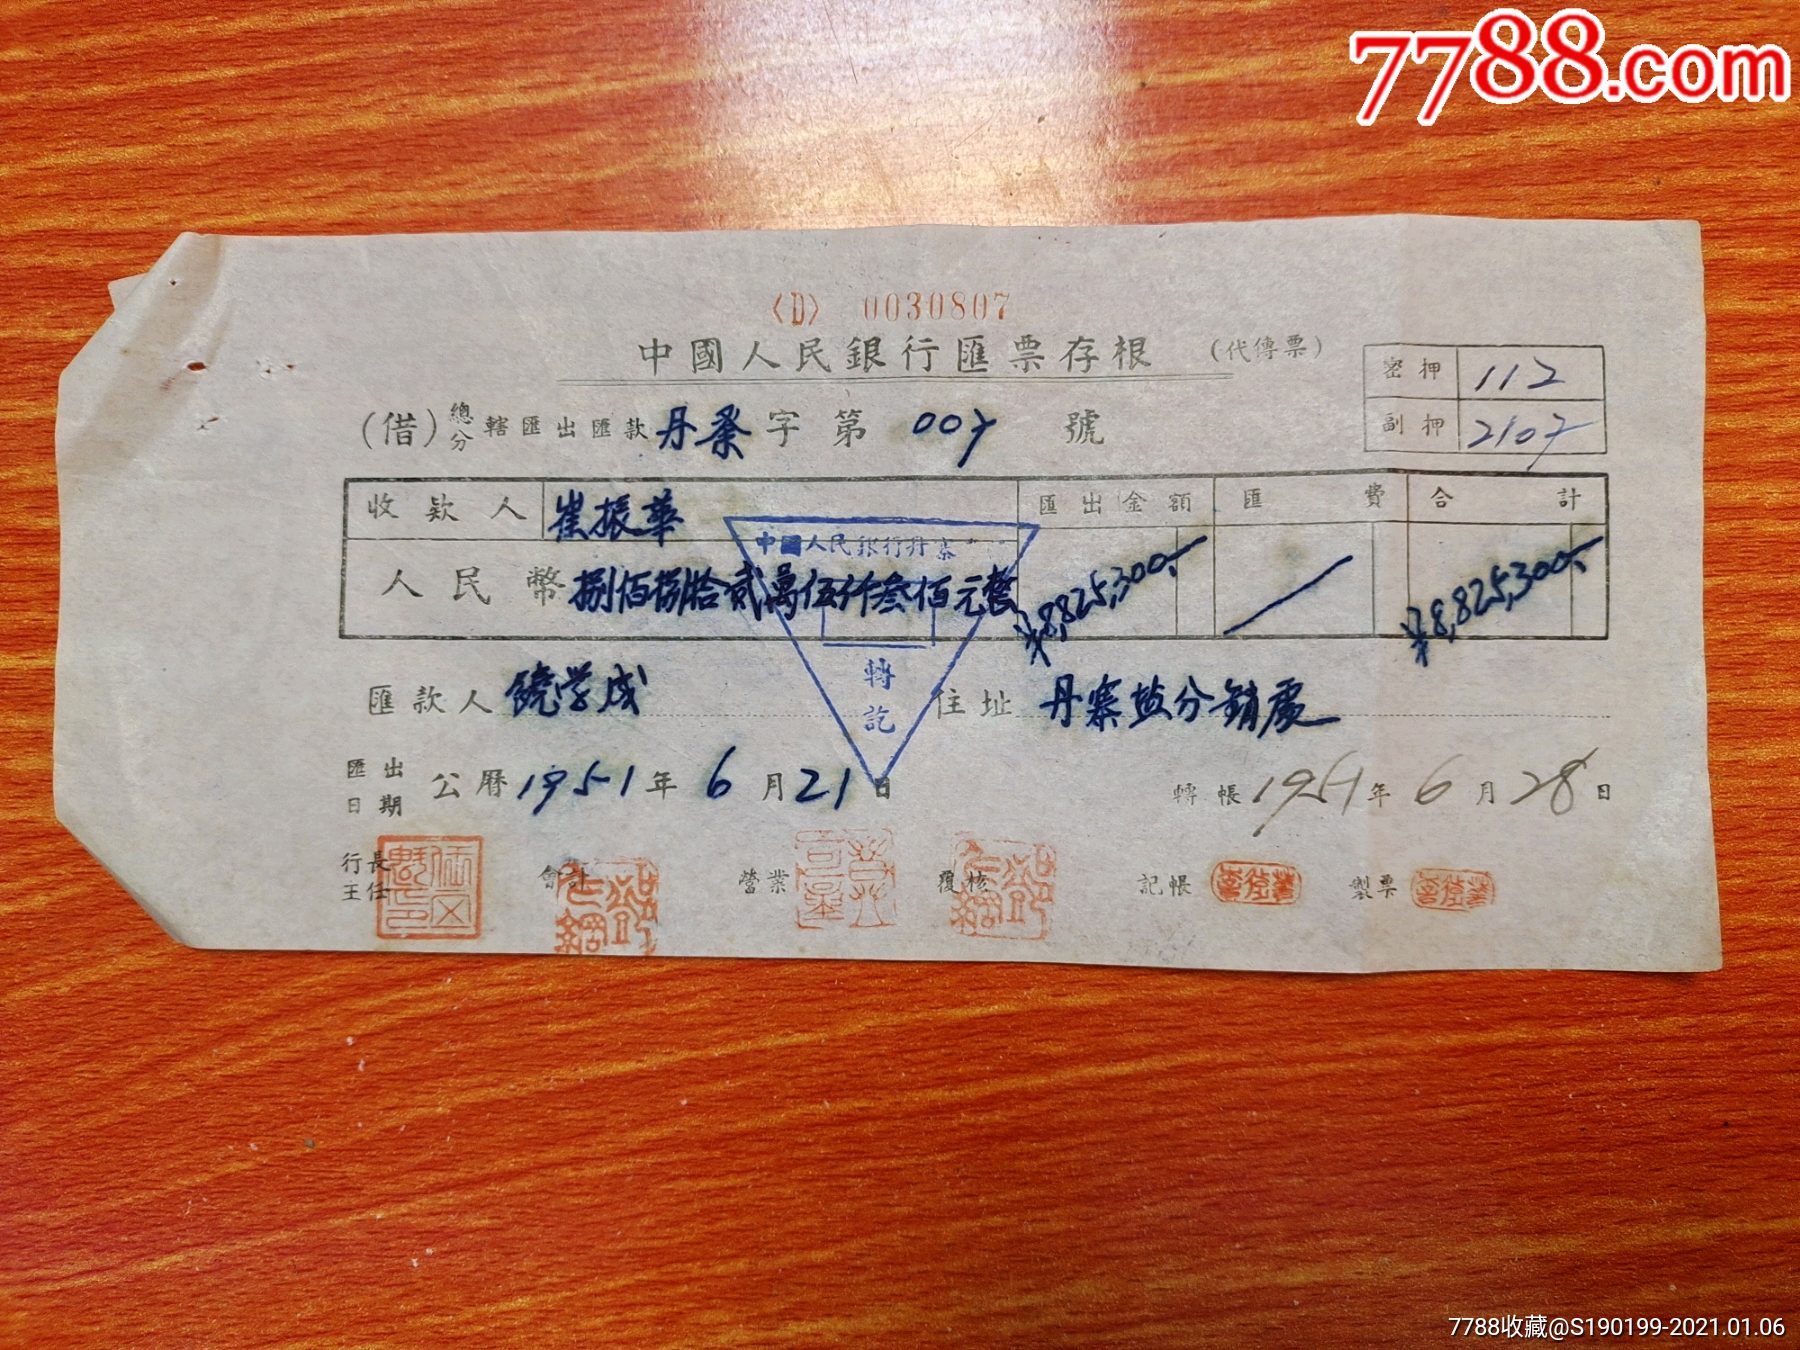 7788.com
〈D〉 0030807
中國人民銀行匯票存根 (代傳票)
密押 112
副押 2107
(借) 總分 轄匯出匯款 丹 字第 007 號
收款人 崔振華 匯出金額 匯費 合計
中國人民銀行丹寨
人民幣 捌佰捌拾贰萬伍仟叁佰元整 ¥8,825,300.- ¥8,825,300.-
轉訖
匯款人 饒学成 住址 丹寨盐分銷處
匯出日期 公曆 1951年 6月 21日 轉帳 1951年 6月 28日
行長 主任 會計 營業 覆核 記帳 製票
7788收藏@S190199-2021.01.06